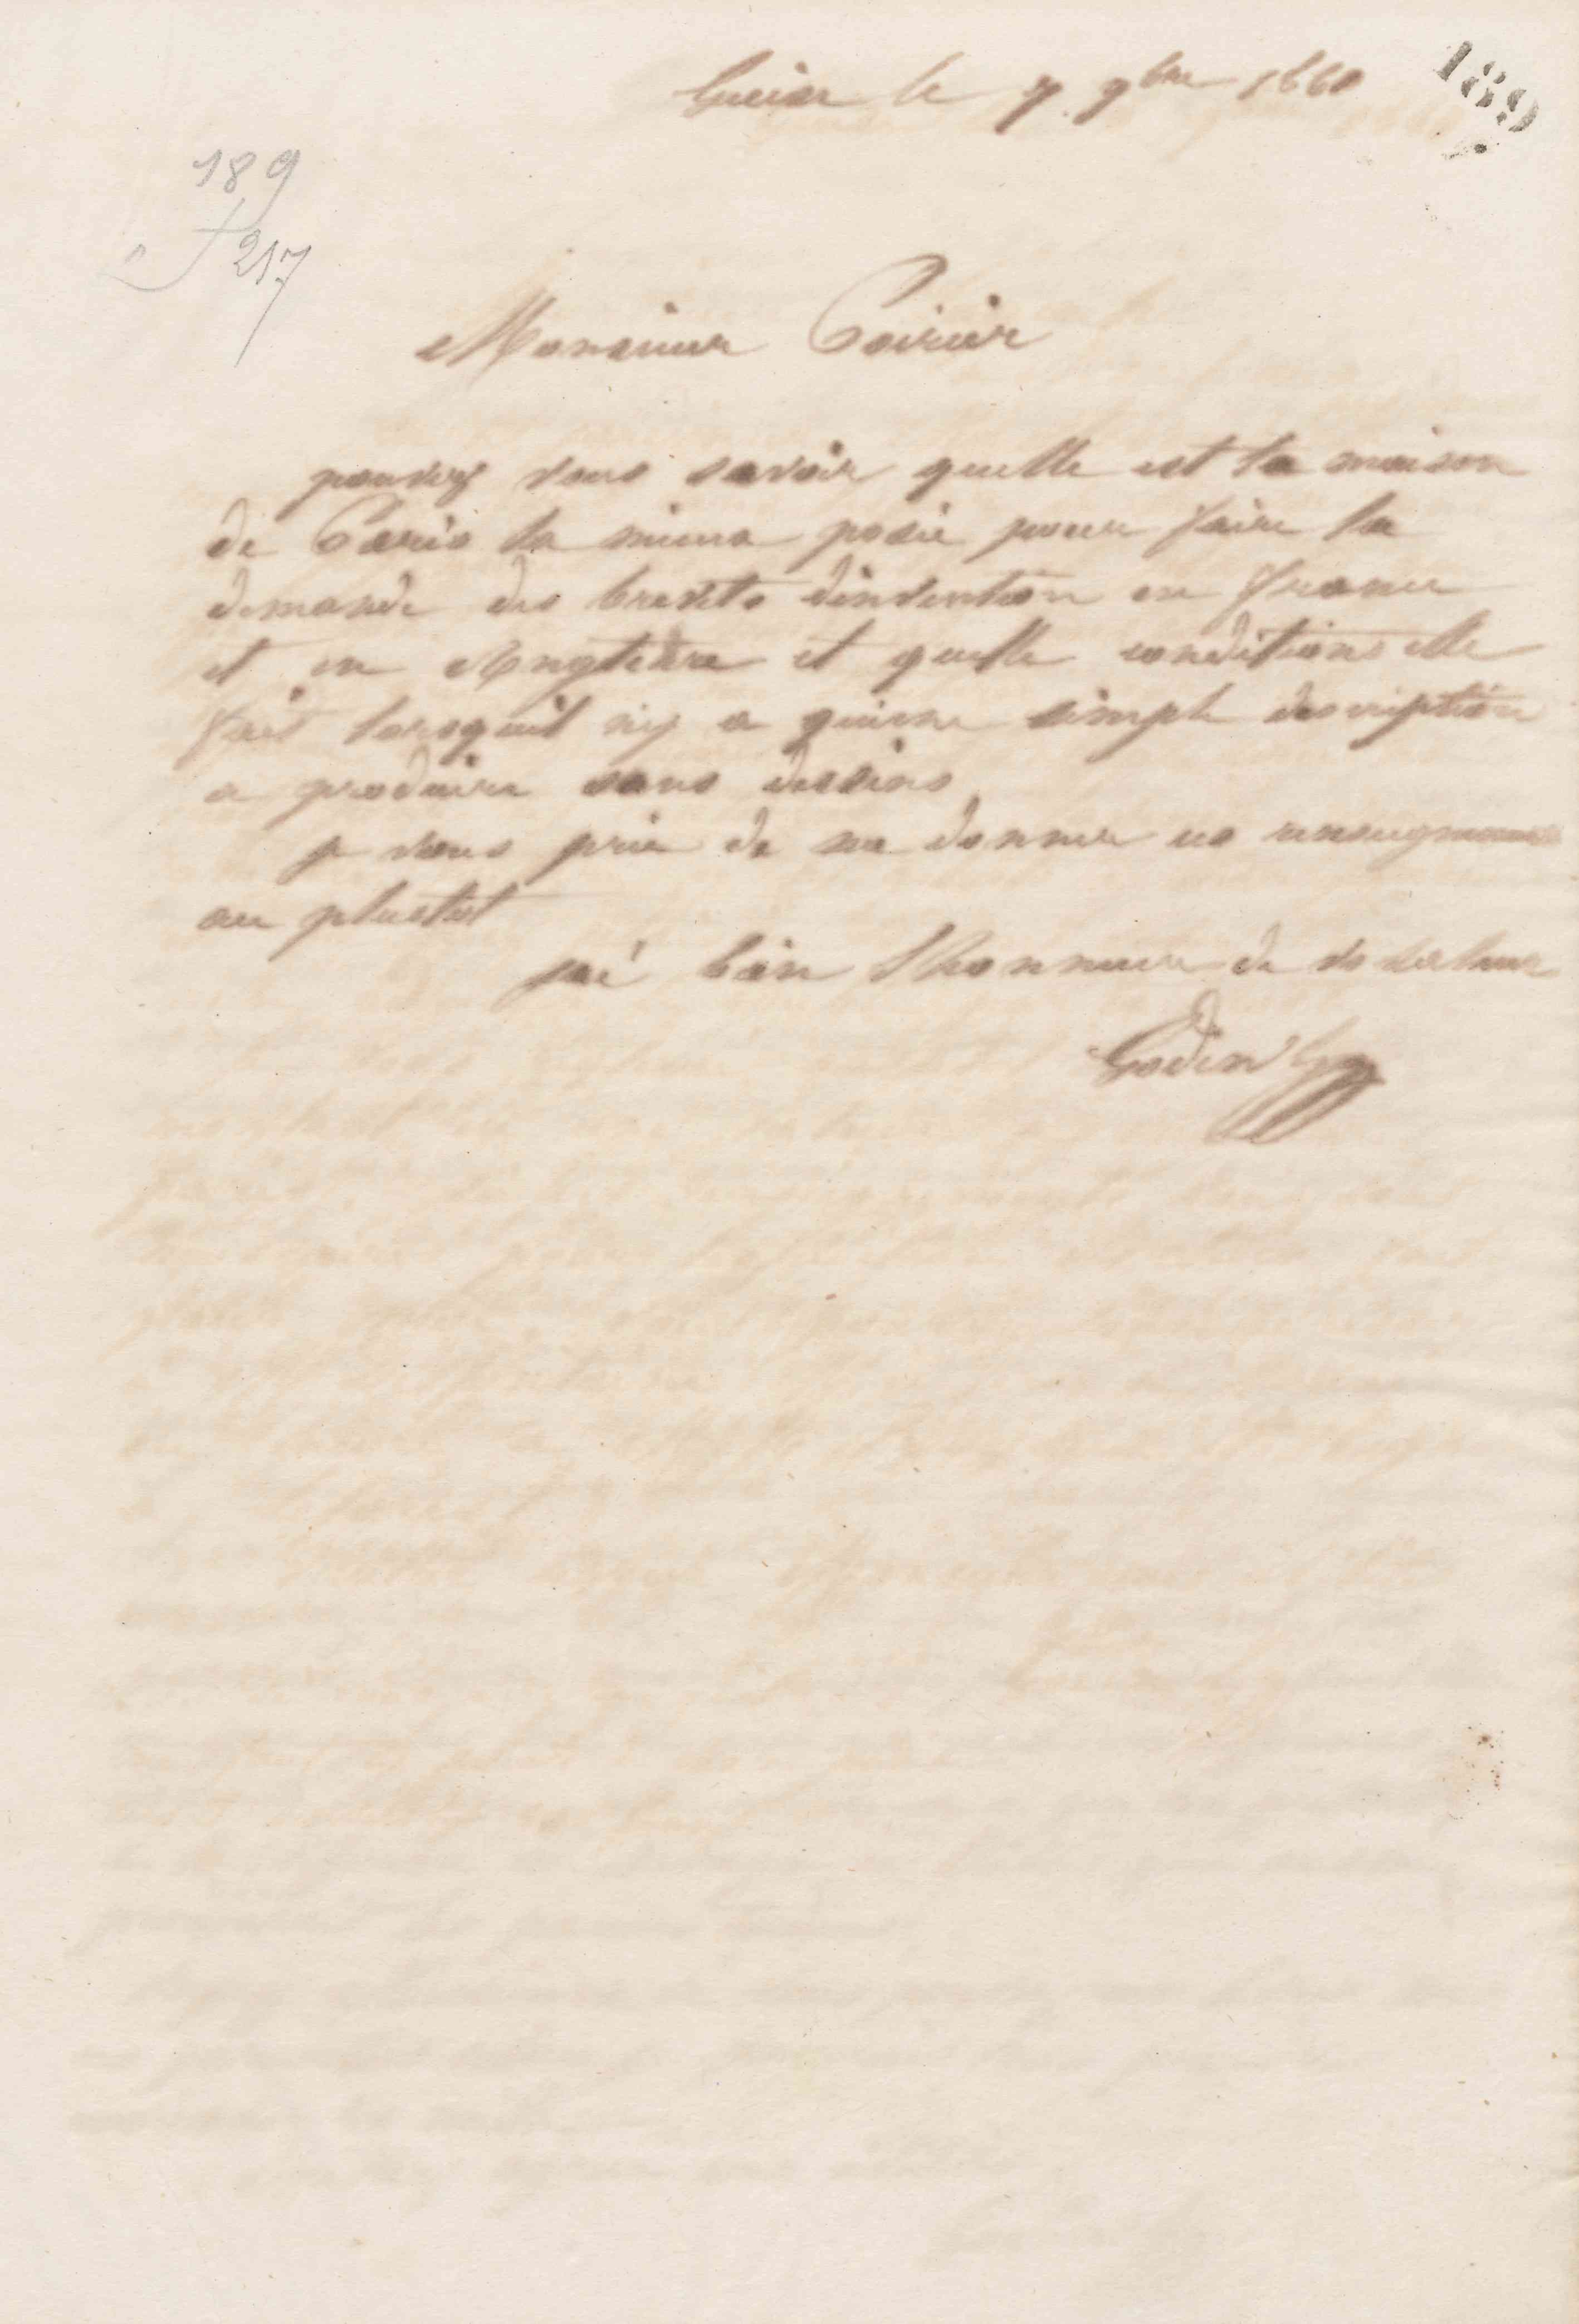 Guise le 7 9bre 1860
189
189
f 217
Monsieur Poirier
pouvez vous savoir quelle est la maison
de Paris la mieux posée pour faire la
demande des brevets dinvention en france
et en Angleterre et quelle conditions elle
fait lorsquil ny a quune simple description
a produire sans dessins
je vous prie de me donner ces renseignements
au plustot
jai bien lhonneur de vs saluer
Godin